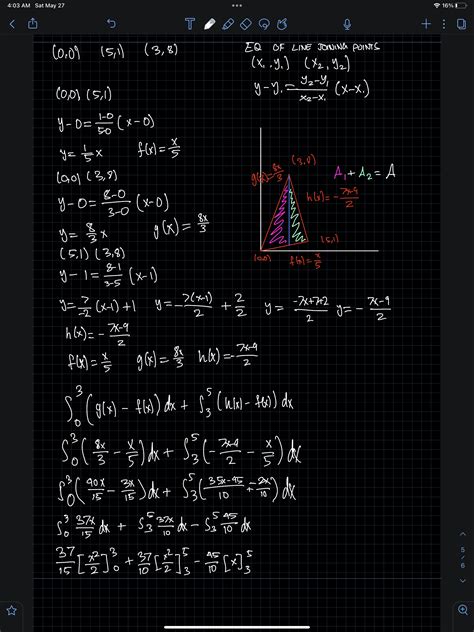 4:03 AM Sat May 27 16%
(0,0) (5,1) (3,8) EQ OF LINE JOINING POINTS
(x₁,y₁) (x₂,y₂)
(0,0) (5,1) y-y₁ = y₂-y₁/x₂-x₁ (x-x₁)
y-0 = 1-0/50 (x-0)
y = 1/5 x f(x) = x/5
(0,0) (3,8)
y-0 = 8-0/3-0 (x-0)
y = 8/3 x g(x) = 8x/3
(3,0)
g(x) = 8x/3 A₁ + A₂ = A
h(x) = - 7x-9/2
(5,1)
(0,0) f(x) = x/5
(5,1) (3,8)
y-1 = 8-1/3-5 (x-1)
y = 7/-2 (x-1) + 1 y = -7(x-1)/2 + 2/2 y = -7x+7+2/2 y = - 7x-9/2
h(x) = - 7x-9/2
f(x) = x/5 g(x) = 8x/3 h(x) = - 7x-9/2
∫₀³ (g(x) - f(x)) dx + ∫₃⁵ (h(x) - f(x)) dx
∫₀³ (8x/3 - x/5) dx + ∫₃⁵ (- 7x-9/2 - x/5) dx
∫₀³ (40x/15 - 3x/15) dx + ∫₃⁵ (35x-45/10 + 2x/10) dx
∫₀³ 37x/15 dx + ∫₃⁵ 37x/10 dx - ∫₃⁵ 45/10 dx
37/15 [x²/2]₀³ + 37/10 [x²/2]₃⁵ - 45/10 [x]₃⁵
5
/
6